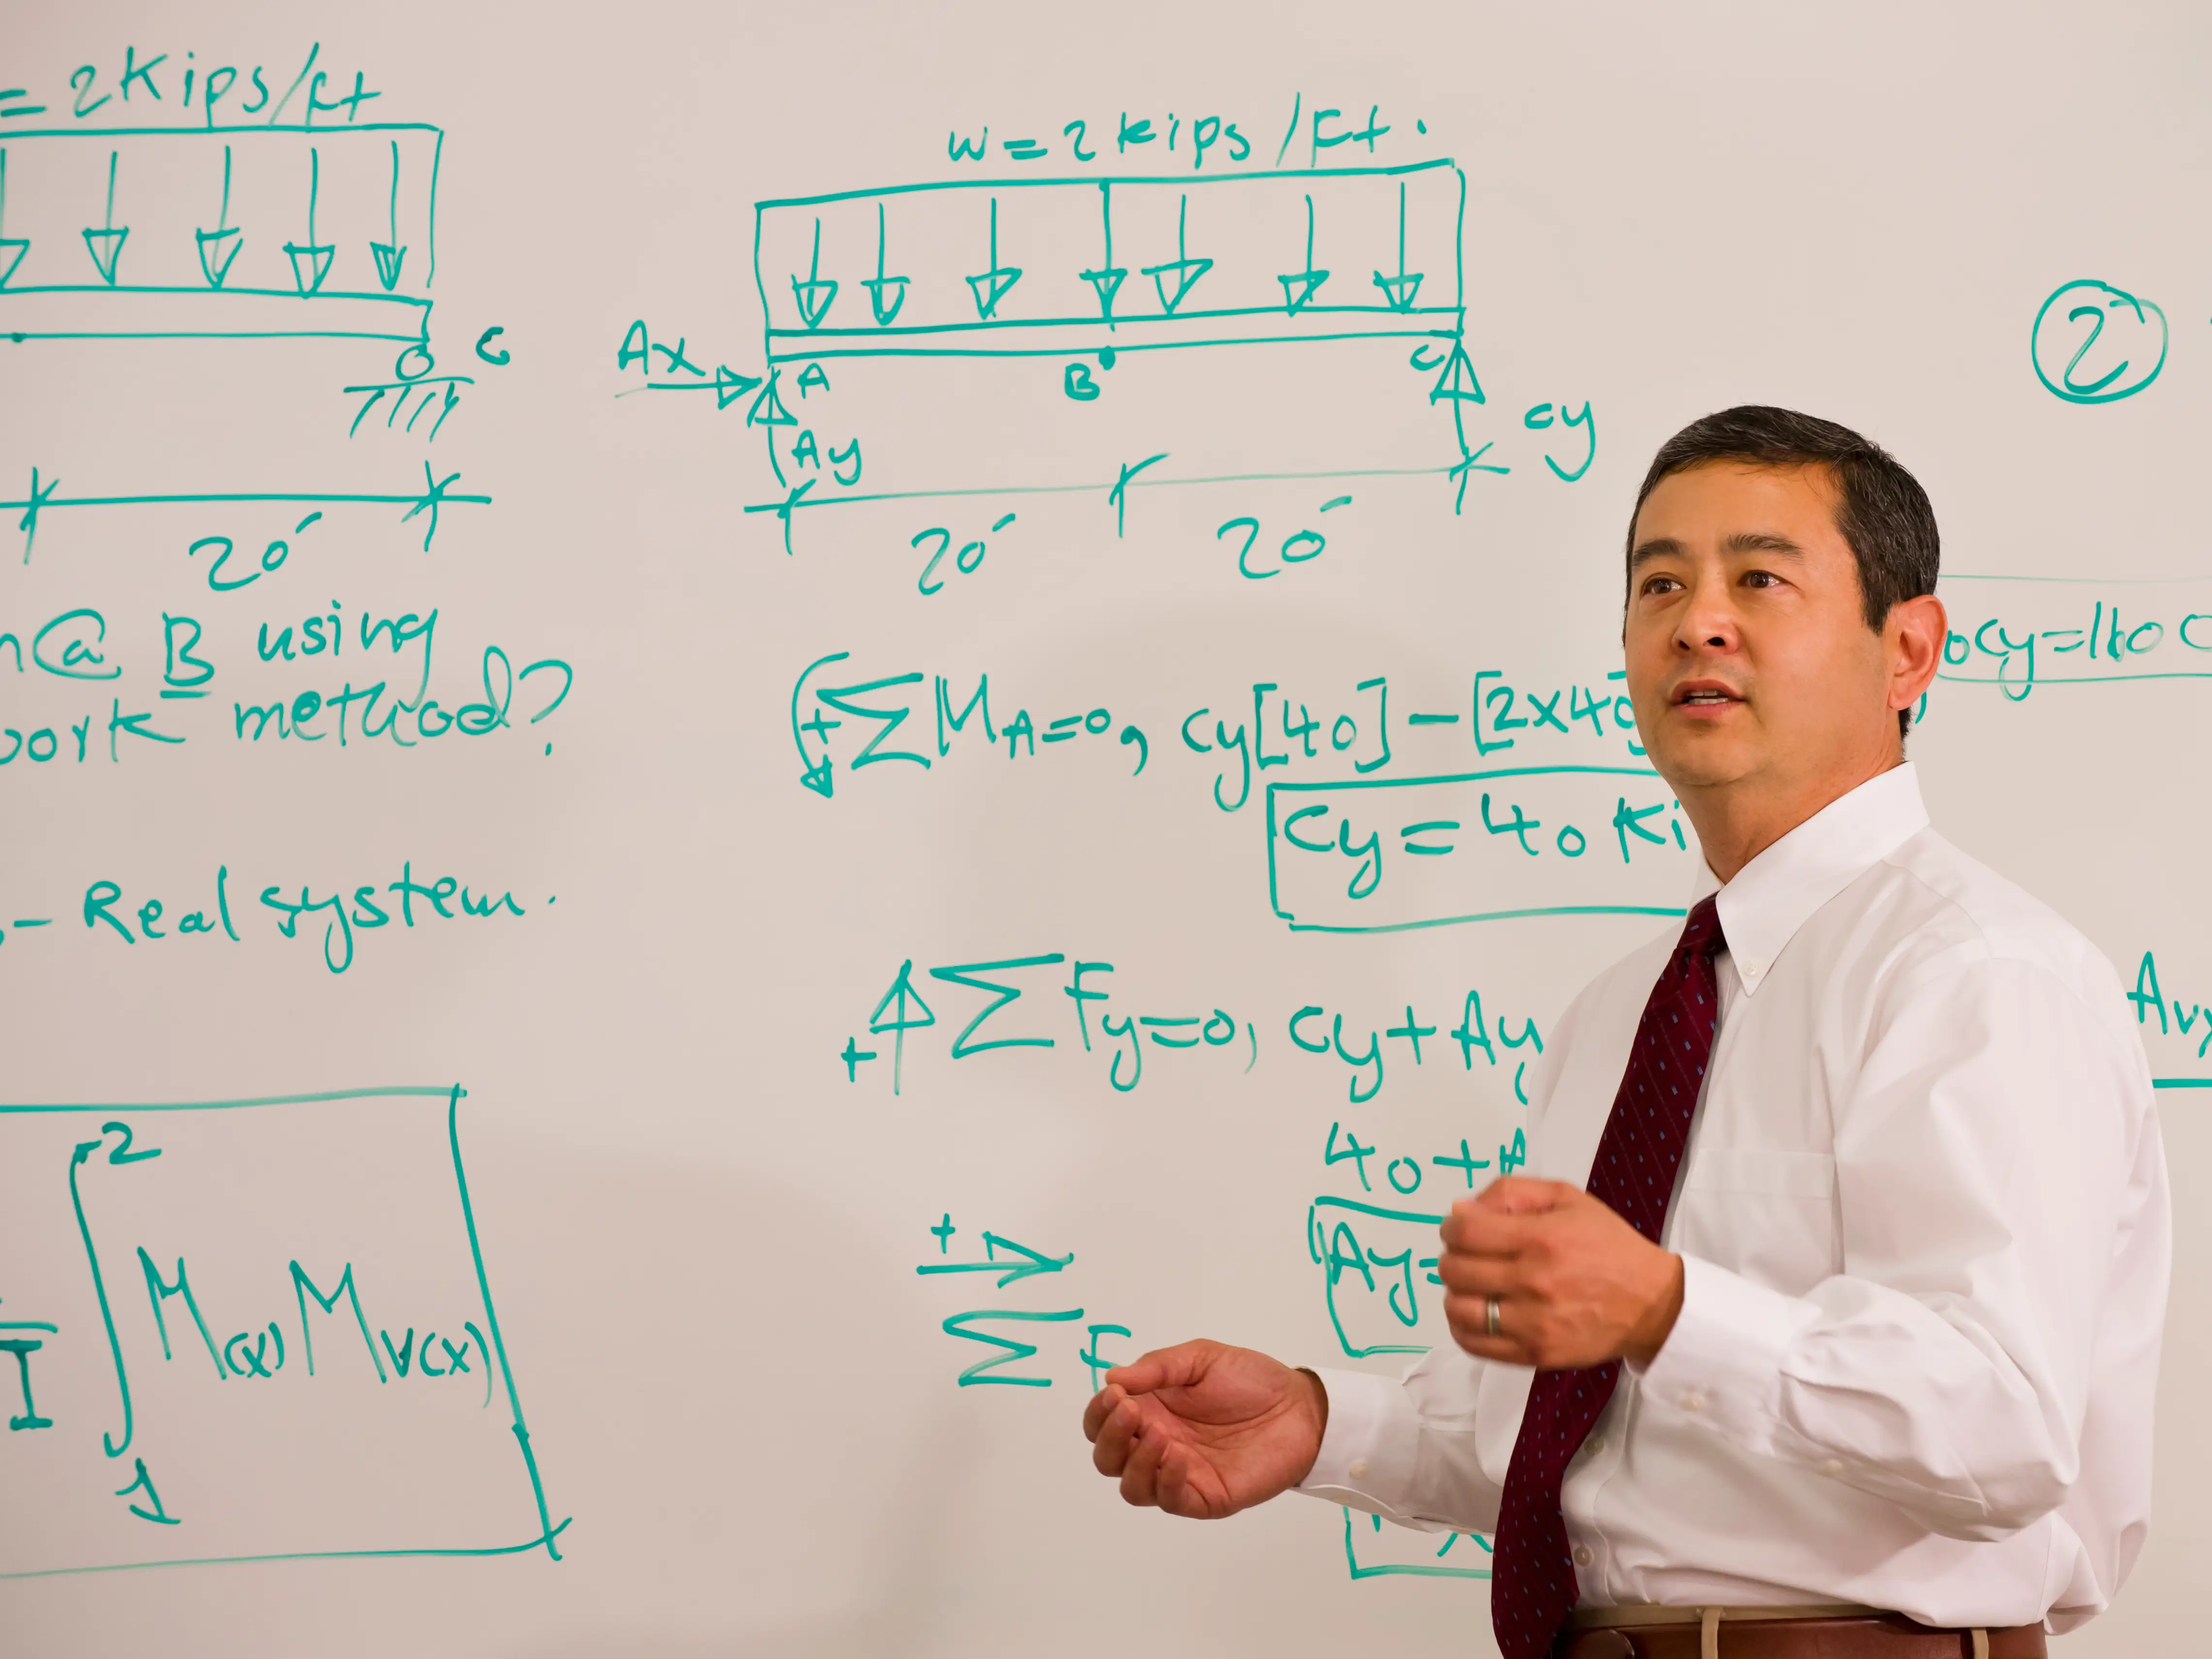 = 2Kips/Ft
C
20'
@ B using
work method?
- Real system.
2
I ∫ M(x) Mv(x)
1
w = 2 kips/Ft.
Ax
A
B
C
Ay
Cy
20' 20'
+ ΣMA=0, Cy[40] - [2x40]
Cy = 40 Ki
+ ΣFy=0, Cy + Ay
40 +
Ay =
+
ΣF
2
Cy=1600
Av